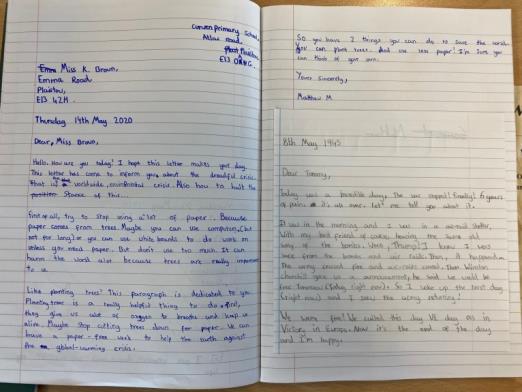 Curwen primary School,
Atlas road,
Plaistow
E13
Miss K. Brown,
Emma Road
Plaistow,
E13 4ZH.
Thursday 14th May 2020
Dear, Miss Brown,
Hello. How are you today? I hope this letter makes your day.
This letter has come to inform you about the dreadful crisis.
That is worldwide, enviromental crisis. Also how to halt the
of this...
first of all, try to stop using a lot of paper... Because
paper comes from trees. Maybe you can use computers, (but
not for long) or you can use white boards to do work on
unless you need paper. But don't use too much. It can
harm the world alot because trees are really important
to us.
Like planting trees! This paragraph is dedicated to you.
Planting trees is a really helpful thing to do. first,
they give us alot of oxygen to breathe and keep us
alive. Maybe stop cutting trees down for paper. We can
have a paper-free week to help the earth against
the global-warming crisis.
So you have 2 things you can do to save the world.
You can plant trees. And use less paper! I'm sure you
can think of your own.
Yours sincerely,
Matthew M
8th May 1945
Dear Tommy,
Today was a incredible day. The war ended! Finally! 6 years
of pain it's all over. let me tell you about it.
It was in the morning and I was in a air-raid shelter.
With my best friend of course, hearing the
of the bombs. I knew I was
safe from the bombs and air raids. Then, it happened.
The and air-raids ended. Then Winston
Churchill gave us a announcement, he said we would be
free tomorrow (Today right now). So I woke up the next day
(right now) and I saw the
We were free! We called this day VE day as in
Victory in Europe. Now it's the end of the day
and I'm happy.